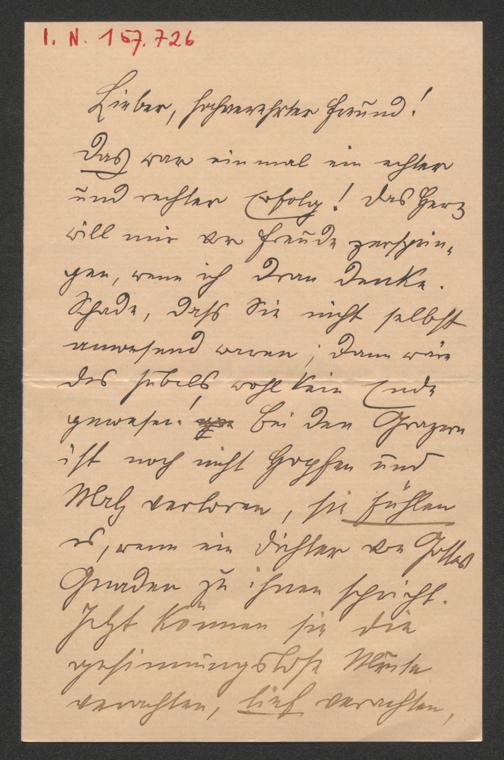 I. N. 157.726
Lieber, hochverehrter Freund!
Das war einmal ein echter
und rechter Erfolg! Das Herz
will mir vor Freude zersprin-
gen, wenn ich dran denke.
Schade, daß Sie nicht selbst
anwesend waren; dann wäre
des Jubels wohl kein Ende
gewesen! Bei den Grazern
ist noch nicht Hopfen und
Malz verloren, sie fühlen
es, wenn ein Dichter von Gottes
Gnaden zu ihnen spricht.
Jetzt können sie die
gesinnungslose Meute
verachten, tief verachten,